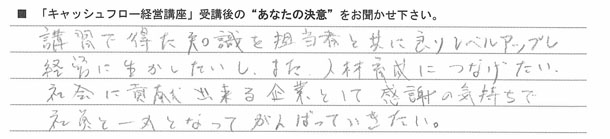 ■ 「キャッシュフロー経営講座」受講後の“あなたの決意”をお聞かせ下さい。
講習で得た知識を担当者と共に良りレベルアップし
経営に生かしたいし、また、人材育成につなげたい。
社会に貢献出来る企業として感謝の気持ちで
社員と一丸となってがんばっていきたい。